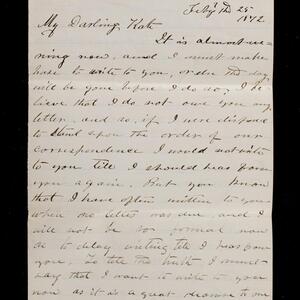 Feby the 25
1872
My Darling Kate
It is almost eve-
ning now, and I must make
haste to write to you, or else the day
will be gone before I do so. I be
lieve that I do not owe you any
letter, and so, if I were disposed
to stand upon the order of our
correspondence I would not write
to you till I should hear from
you again. But you know
that I have often written to you
when no letter was due, and I
will not be so formal now
as to delay writing till I hear from
you. To tell the truth I must
say that I want to write to you
now as it is a great pleasure to me